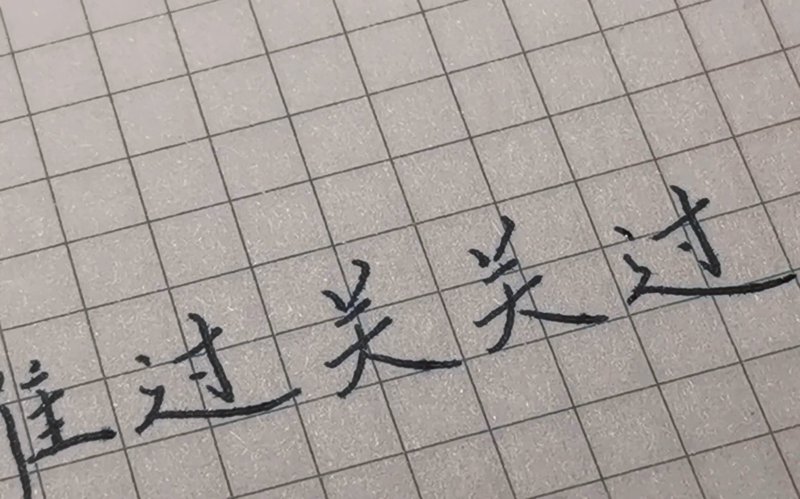 难过关关过